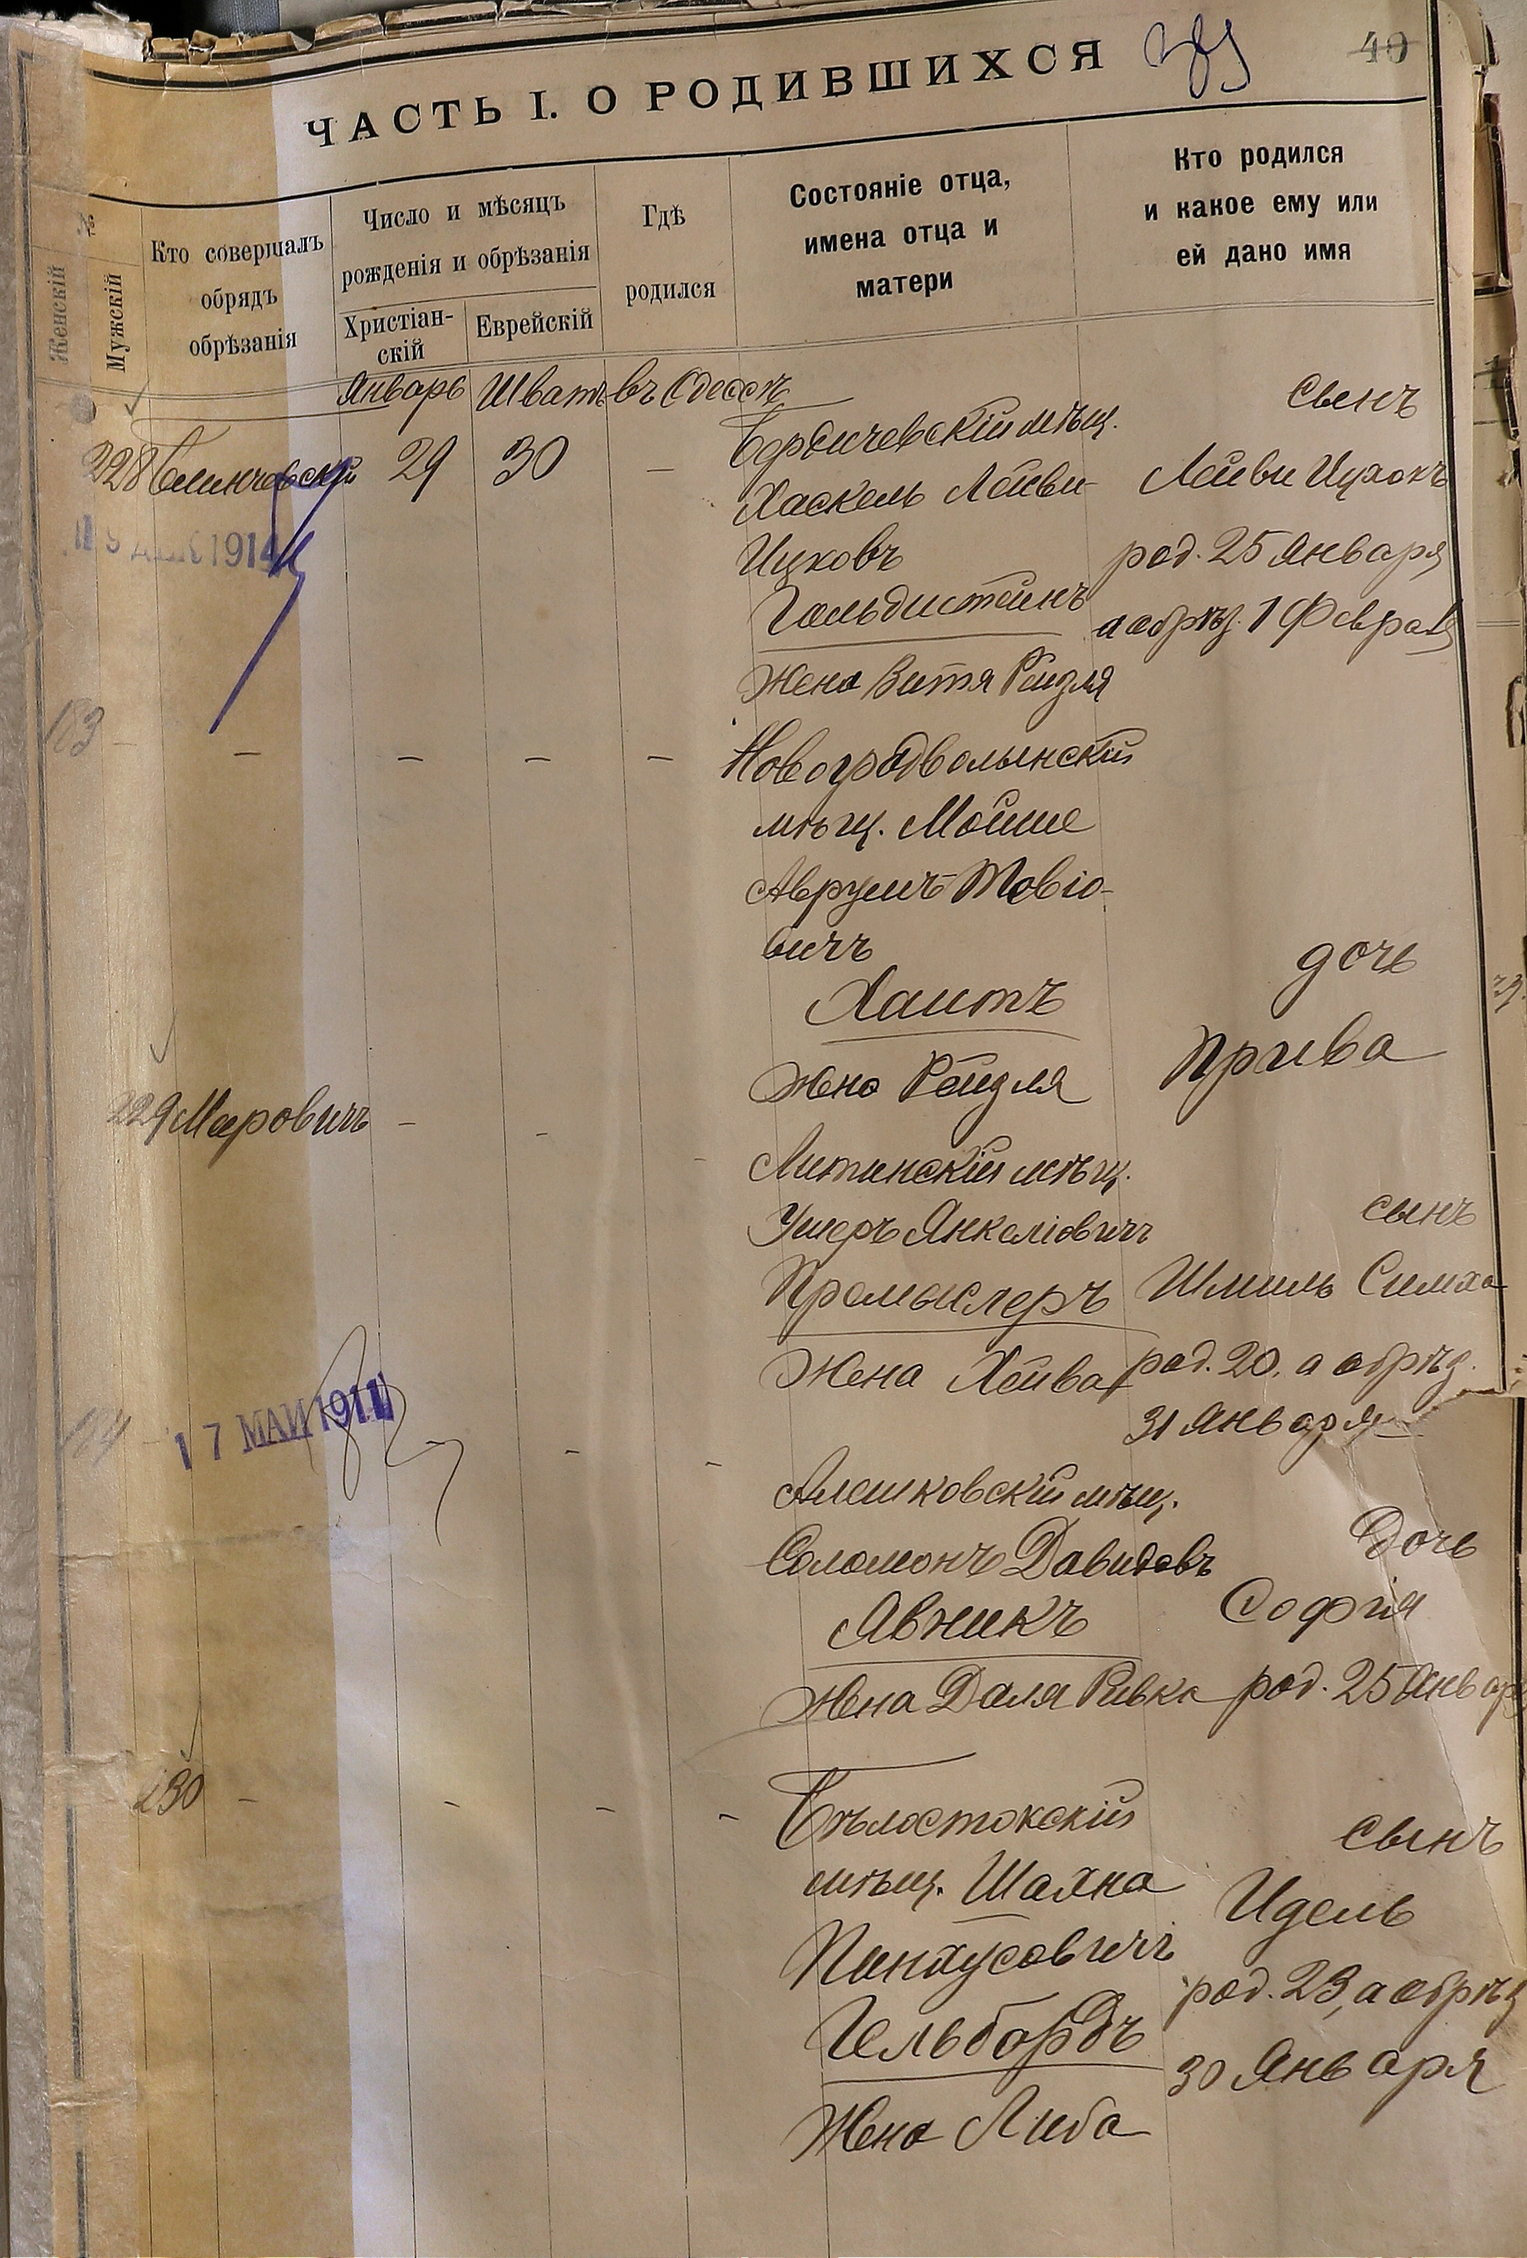 40
ЧАСТЬ I. О РОДИВШИХСЯ
№
Женскій
Мужскій
Кто совершалъ
обрядъ
обрѣзанія
Число и мѣсяцъ
рожденія и обрѣзанія
Христіан-
скій
Еврейскій
Гдѣ
родился
Состояніе отца,
имена отца и
матери
Кто родился
и какое ему или
ей дано имя
Январь Шватъ въ Одессѣ
228 29 30 —
Бердичевскій мѣщ.
Хаскель Лейви-
Ицковъ
Гольдштейнъ
Жена Витя Рейзля
сынъ
Лейви Ицхокъ
род. 25 Января
а обрѣз. 1 Февраля
1914
183 — — — — —
Новоградволынскій
мѣщ. Мойше
Аврумъ Товіо-
вичъ
Хаитъ
Жена Рейзля
дочь
Прива
229 Меровичъ — — -
Литинскій мѣщ.
Ушеръ Янкеліовичъ
Премыслеръ
Жена Хейва
сынъ
Шмиль Симха
род. 20, а обрѣз.
31 Января
184 — - - -
17 МАЙ 1911
Алешковскій мѣщ.
Соломонъ Давидовъ
Явникъ
Жена Даля Ривка
дочь
Софія
род. 25 Января
230 - - - -
Бѣлостокскій
мѣщ. Шахна
Пинхусовичъ
Гельбордъ
Жена Либа
сынъ
Идель
род. 23, а обрѣз
30 Января